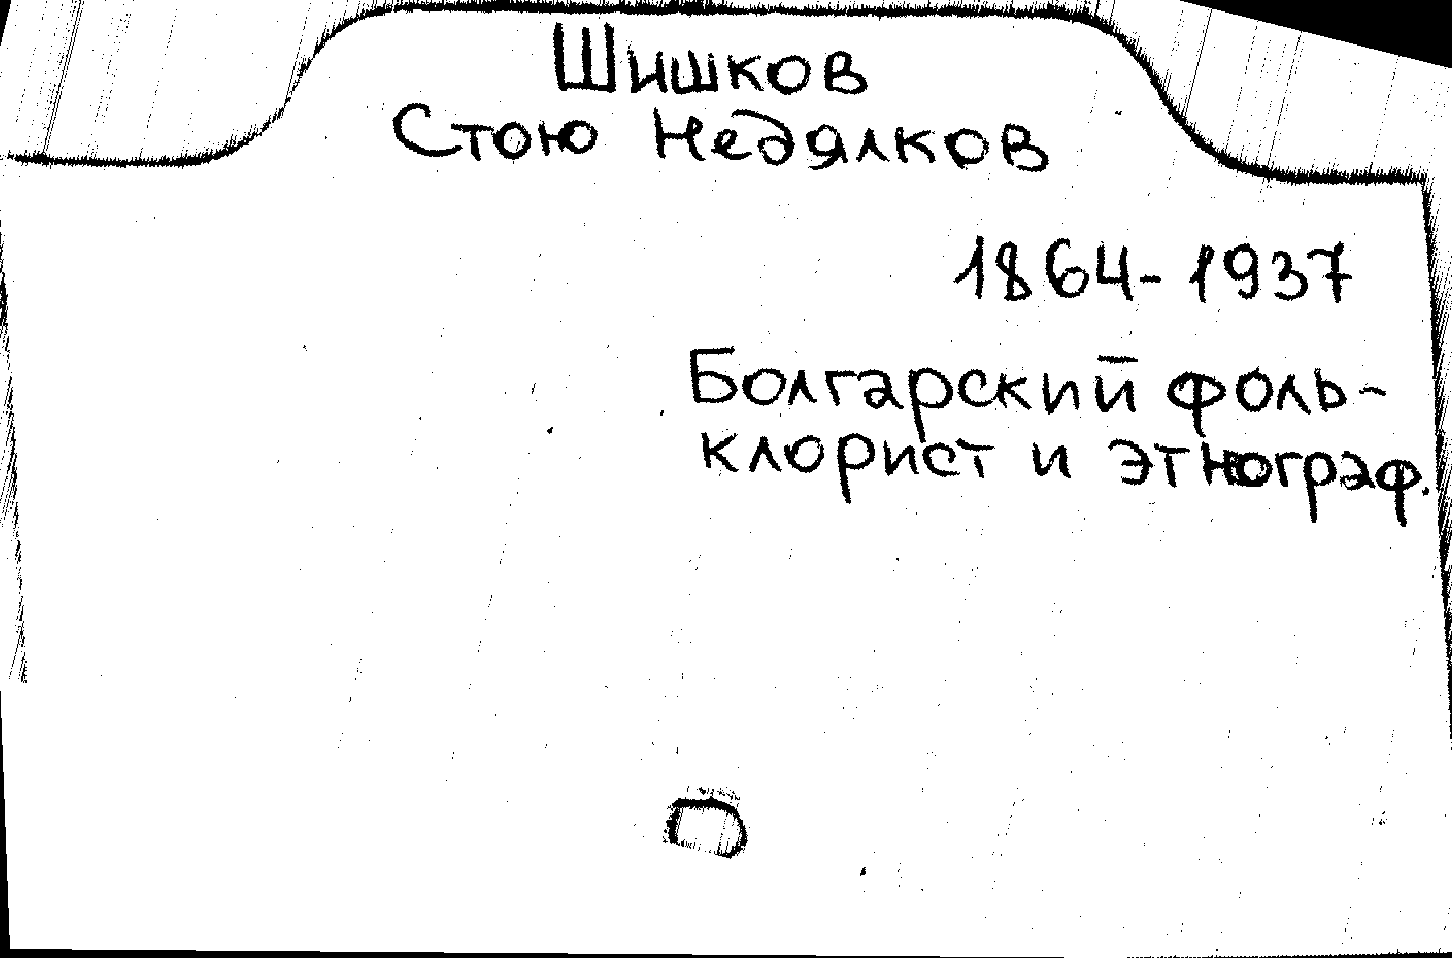 Шишков
Стою Недялков
1864-1937
Болгарский фоль-
клорист и этнограф.